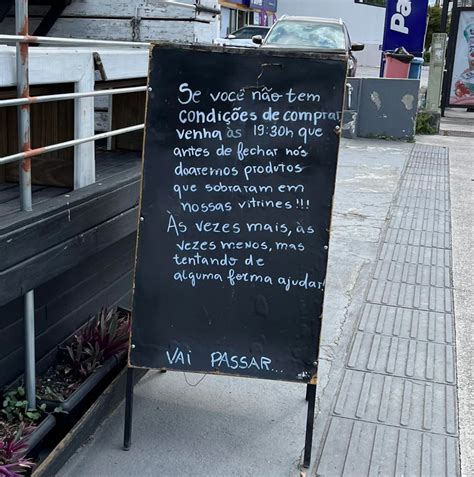 Se você não tem
condições de comprar
venha às 19:30h que
antes de fechar nós
doaremos produtos
que sobraram em
nossas vitrines!!!
Às vezes mais, às
vezes menos, mas
tentando de
alguma forma ajudar!
VAI PASSAR...